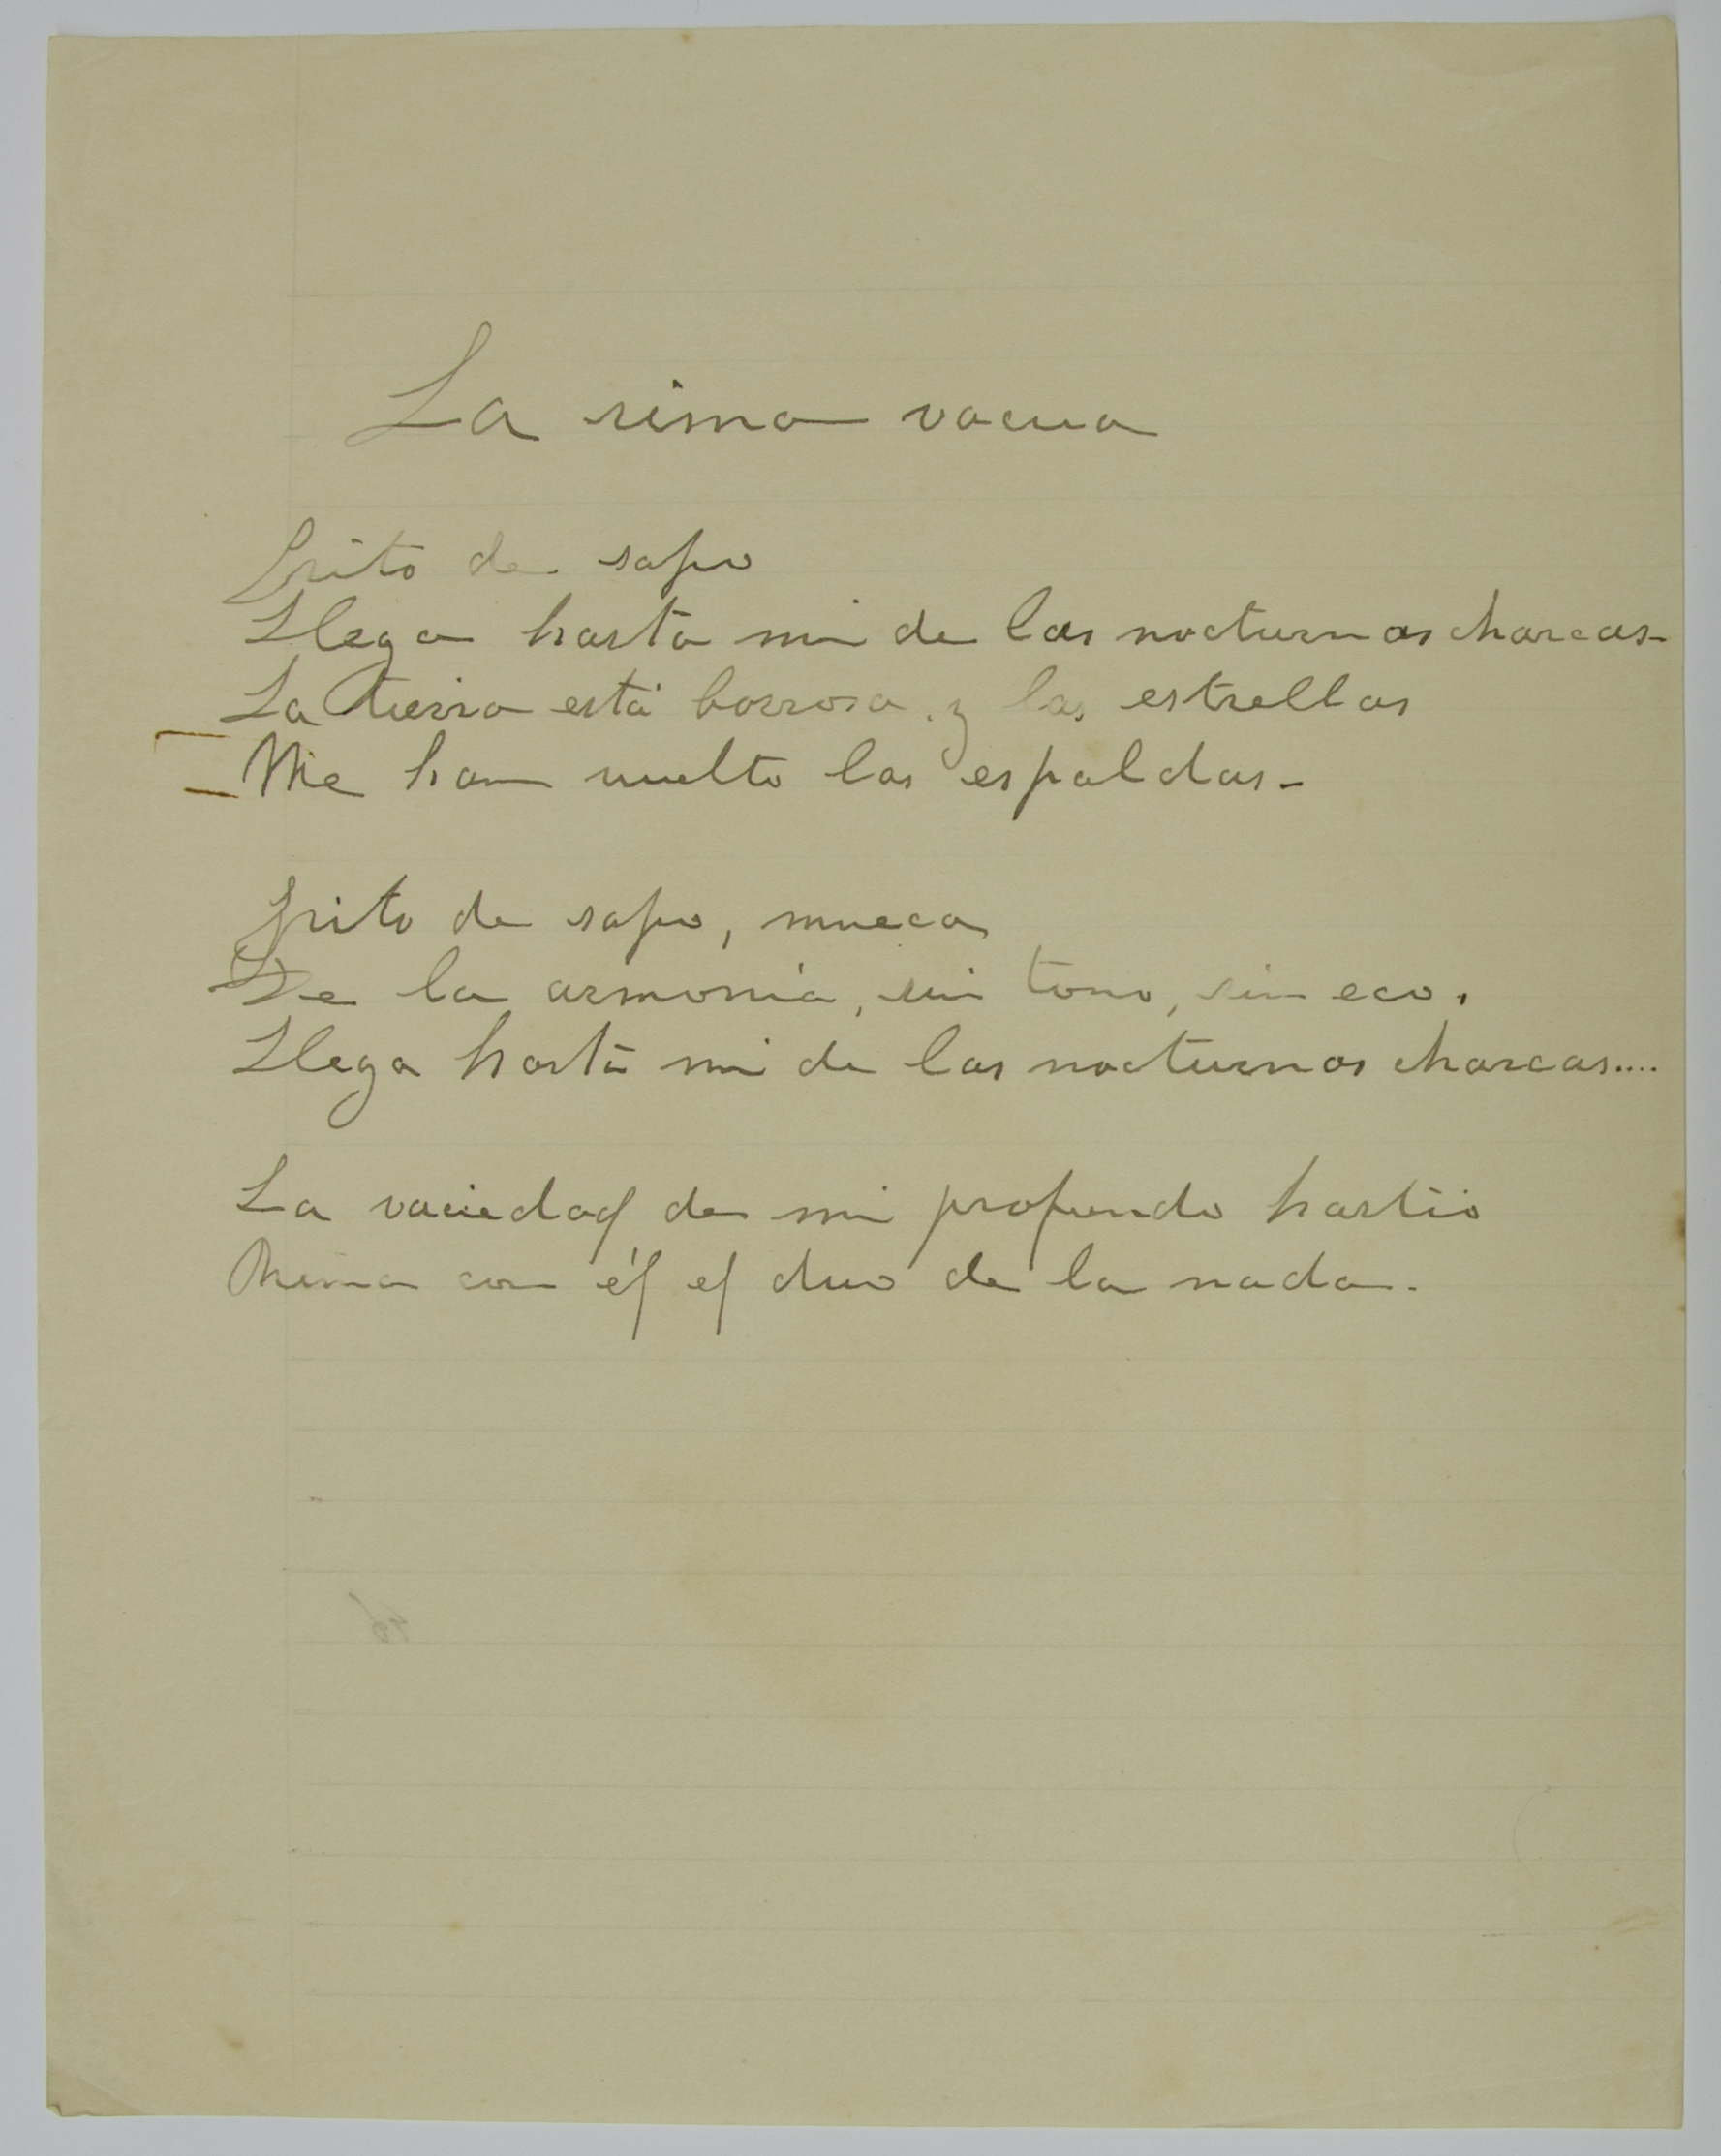 La rima vacua
Grito de sapo
Llega hasta mi de las nocturnas charcas-
La tierra está borrosa y las estrellas
Me han vuelto las espaldas-
Grito de sapo, mueca
De la armonía, sin tono, sin eco,
Llega hasta mi de las nocturnas charcas....
La vaciedad de mi profundo hastío
Rima con él el duo de la nada.